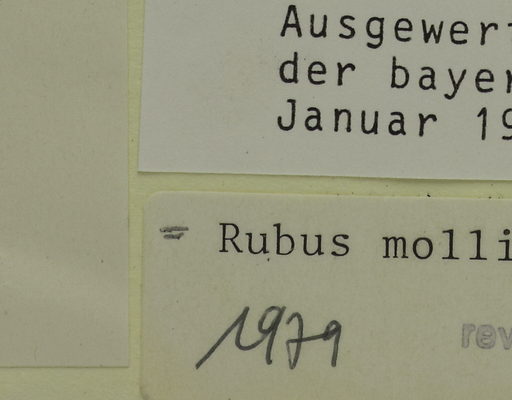 Ausgewer
der baye
Januar 19
= Rubus molli
1979
rev